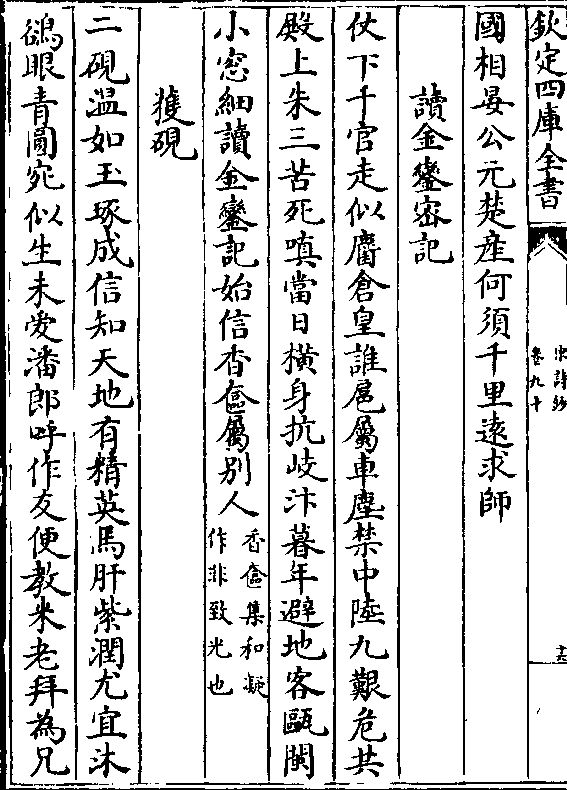 欽定四庫全書
宋詩鈔
卷九十
十三
國相晏公元楚産何須千里遠求師
讀金鑾密記
仗下千官走似麕倉皇誰扈屬車塵禁中陸九艱危共
殿上朱三苦死嗔當日横身抗岐汴暮年避地客甌閩
小窓細讀金鑾記始信香奩屬别人
香奩集和凝
作非致光也
獲硯
二硯温如玉琢成信知天地有精英馬肝紫潤尤宜沐
鵒眼青圎宛似生未愛潘郎呼作友便教米老拜為兄